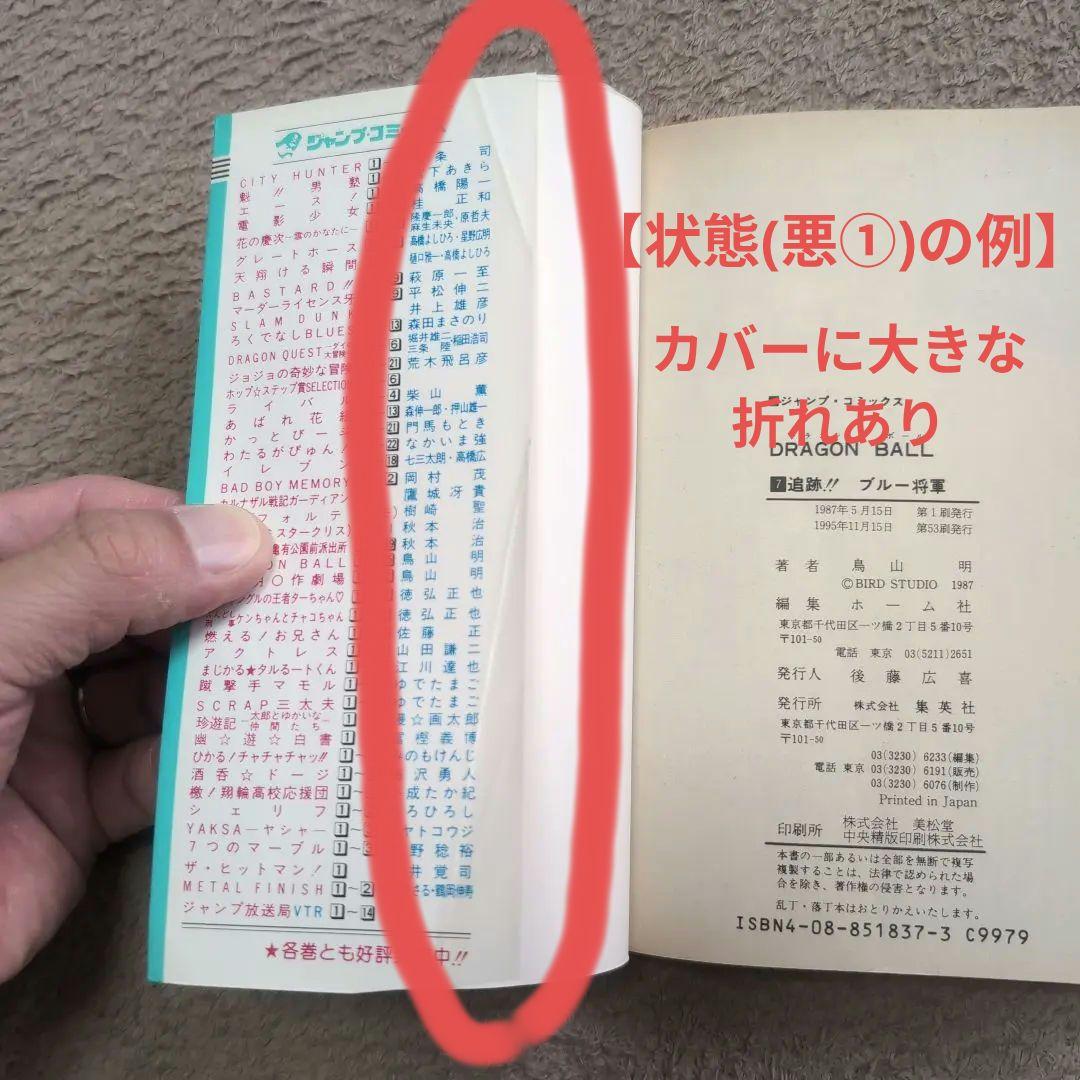 ジャンプ・コミ
CITY HUNTER 1 条司
魁!!男塾 1 下あきら
エース! 1 高橋陽一
電影少女 1 桂正和
花の慶次―雲のかなたに― 隆慶一郎・原哲夫 麻生未央
グレートホース 高橋よしひろ・星野広明
天翔ける瞬間 樋口雅一・高橋よしひろ
BASTARD!! 9 萩原一至
マーダーライセンス牙 9 平松伸二
SLAM DUNK 井上雄彦
ろくでなしBLUES 13 森田まさのり
DRAGON QUEST―ダイの大冒険 6 堀井雄二・稲田浩司 三条陸
ジョジョの奇妙な冒険 21 荒木飛呂彦
ホップ☆ステップ賞SELECTION 6
ライバル 4 柴山薫
あばれ花組 13 森伸一郎・押山雄一
かっとびー 21 門馬もとき
わたるがぴゅん! 22 なかいま強
イレブン 18 七三太朗・高橋広
BAD BOY MEMORY 2 岡村茂
カルナザル戦記ガーディアン 鷹城冴貴
フォルテ 樹崎聖
ミスタークリス) 秋本治
亀有公園前派出所 秋本治
ON BALL 鳥山明
〇作劇場 1 鳥山明
グルの王者ターちゃん♡ 1 徳弘正也
ケンちゃんとチャコちゃん 1 徳弘正也
燃える!お兄さん 1 佐藤正
アクトレス 1 山田謙二
まじかる★タルるートくん 1 江川達也
蹴撃手マモル 1 ゆでたまご
SCRAP三太夫 1 ゆでたまご
珍遊記―太郎とゆかいな仲間たち― 1 漫☆画太郎
幽☆遊☆白書 1 冨樫義博
ひかる!チャチャチャッ!! 1~ みのもけんじ
酒呑☆ドージ 1~ 沢勇人
檄!翔輪高校応援団 1~ 成たか紀
シェリフ 1~ ろひろし
YAKSA―ヤシャ― 1~ ヤトコウジ
7つのマーブル 1~3 野稔裕
ザ・ヒットマン! 1 井覚司
METAL FINISH 1~2 さる・鶴岡伸寿
ジャンプ放送局VTR 1~14
★各巻とも好評 中!!
【状態(悪①)の例】
カバーに大きな
折れあり
ジャンプ・コミックス
DRAGON BALL
7 追跡!! ブルー将軍
1987年5月15日 第1刷発行
1995年11月15日 第53刷発行
著者 鳥山明
©BIRD STUDIO 1987
編集 ホーム社
東京都千代田区一ツ橋2丁目5番10号
〒101-50
電話 東京 03(5211)2651
発行人 後藤広喜
発行所 株式会社 集英社
東京都千代田区一ツ橋2丁目5番10号
〒101-50
03(3230)6233(編集)
電話 東京 03(3230)6191(販売)
03(3230)6076(制作)
Printed in Japan
印刷所 株式会社 美松堂
中央精版印刷株式会社
本書の一部あるいは全部を無断で複写
複製することは、法律で認められた場
合を除き、著作権の侵害となります。
乱丁・落丁本はおとりかえいたします。
ISBN4-08-851837-3 C9979